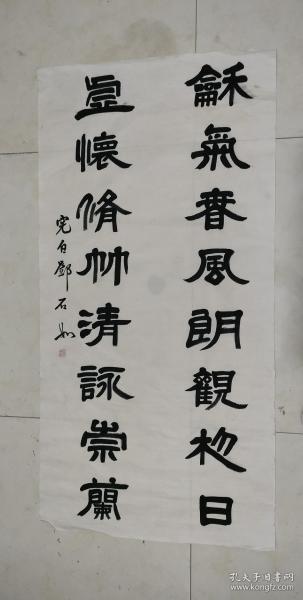 龢氣春風朗觀初日
虛懷脩竹清詠崇蘭
完白鄧石如
孔夫子旧书网